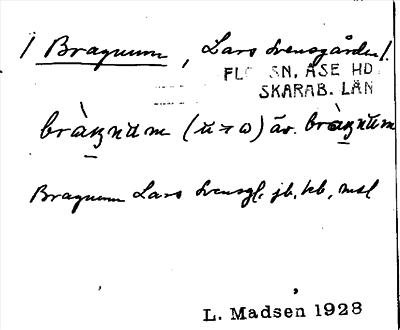 / Bragnum, Lars Svensgården /.
FL SN, ÅSE HD
SKARAB. LÄN
bràgnum (u > ω) äv. bràgnum
Bragnum Lars Svensg. jb, kb, msl
L. Madsen 1928